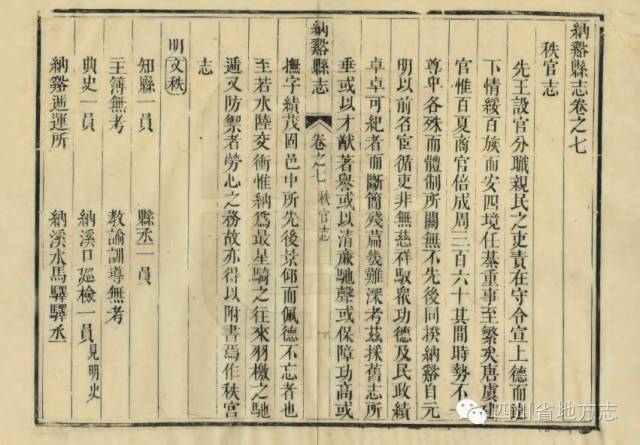 納谿縣志卷之七
秩官志
先王設官分職親民之吏責在守令宣上德而
下情綏百族而安四境任綦重事至繁矣唐虞建
官惟百夏商官倍成周三百六十其間時勢不
尊卑各殊而體制所關無不先後同揆納谿自元
明以前名宦循吏非無慈祥馭衆功德及民政績
卓卓可紀者而斷簡殘篇幾難深考茲採舊志所
垂或以才猷著譽或以清廉馳聲或保障功高或
納谿縣志
卷之七
秩官志
撫字績茂固邑中所先後景仰而佩德不忘者也
至若水陸交衝惟納爲最星騎之往來羽檄之馳
遞又防禦者勞心之務故亦得以附書焉作秩官
志
明文秩
知縣一員
縣丞一員
主簿無考
教諭訓導無考
典史一員
納溪口巡檢一員見明史
納谿遞運所
納溪水馬驛驛丞
四川省地方志